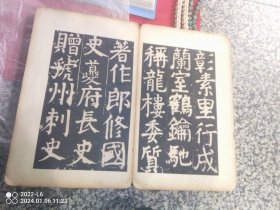 彰素里行成
蘭室鶴鑰馳
稱龍樓委質
著作郎修國
史夔府長史
贈虢州刺史
2022-L6
2024.01.06 11:23